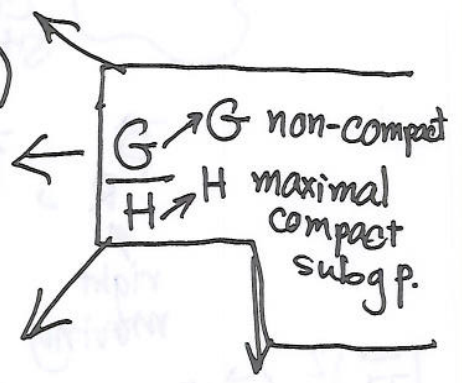 G → G non-compact
H → H maximal
compact
subgp.